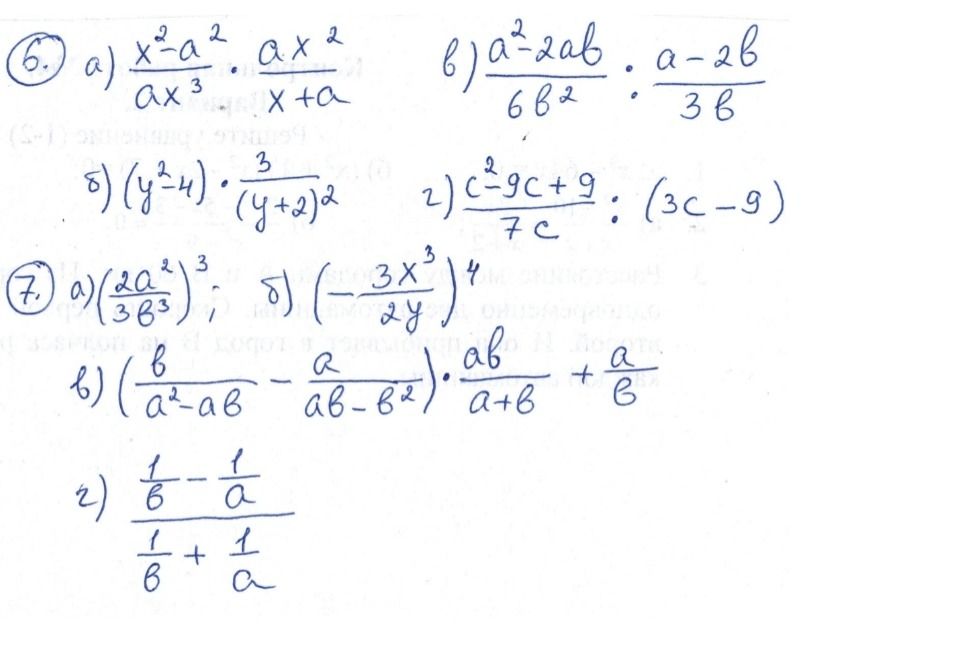 6. а) (x² - a²)/(ax³) · (ax²)/(x + a)   в) (a² - 2ab)/(6b²) : (a - 2b)/(3b)
б) (y² - 4) · 3/(y + 2)²   г) (c² - 9c + 9)/(7c) : (3c - 9)
7. а) (2a²/3b³)³;   б) (- 3x³/2y)⁴
в) (b/(a² - ab) - a/(ab - b²)) · ab/(a + b) + a/b
г) (1/b - 1/a)/(1/b + 1/a)